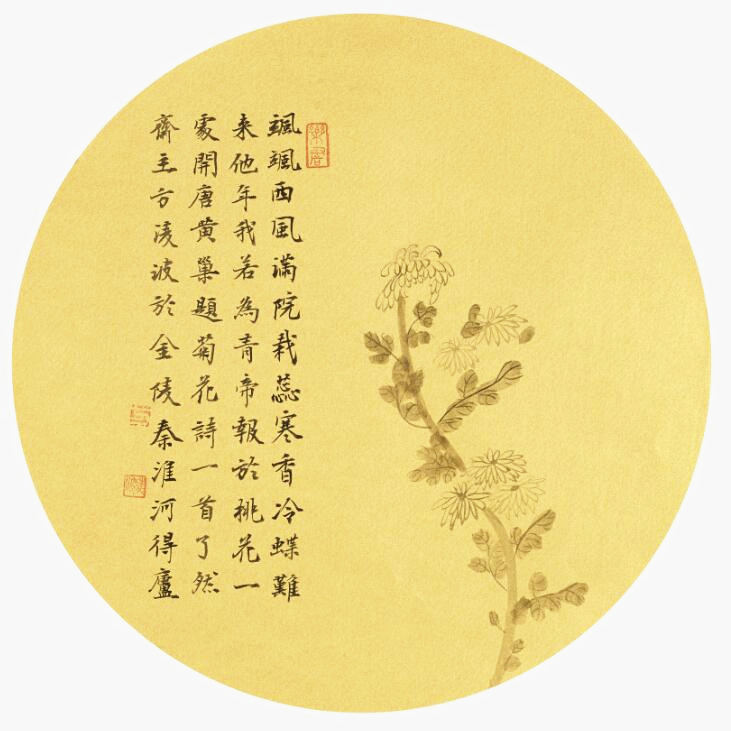 飒飒西風滿院栽蕊寒香冷蝶難
来他年我若為青帝報於桃花一
處開唐黄巢題菊花詩一首了然
齋主方淩波於金陵秦淮河得廬